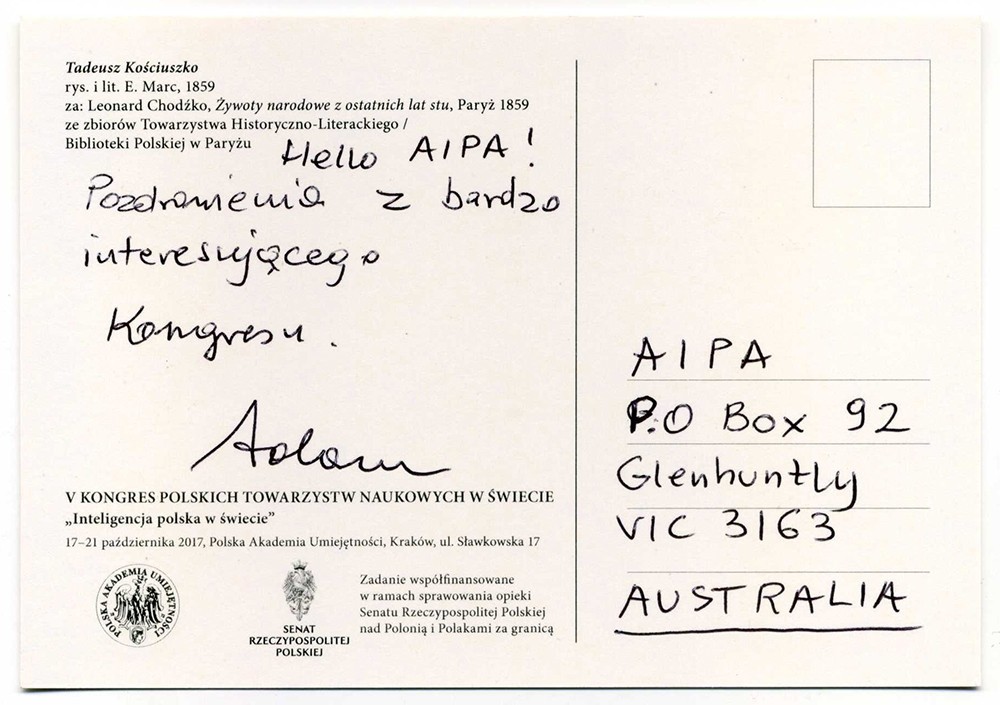 Tadeusz Kościuszko
rys. i lit. E. Marc, 1859
za: Leonard Chodźko, Żywoty narodowe z ostatnich lat stu, Paryż 1859
ze zbiorów Towarzystwa Historyczno-Literackiego /
Biblioteki Polskiej w Paryżu
Hello AIPA!
Pozdrowienia z bardzo
interesującego
Kongresu.
Adam
V KONGRES POLSKICH TOWARZYSTW NAUKOWYCH W ŚWIECIE
„Inteligencja polska w świecie”
17–21 października 2017, Polska Akademia Umiejętności, Kraków, ul. Sławkowska 17
POLSKA AKADEMIA UMIEJĘTNOŚCI
SENAT
RZECZYPOSPOLITEJ
POLSKIEJ
Zadanie współfinansowane
w ramach sprawowania opieki
Senatu Rzeczypospolitej Polskiej
nad Polonią i Polakami za granicą
AIPA
P.O Box 92
Glenhuntly
VIC 3163
AUSTRALIA